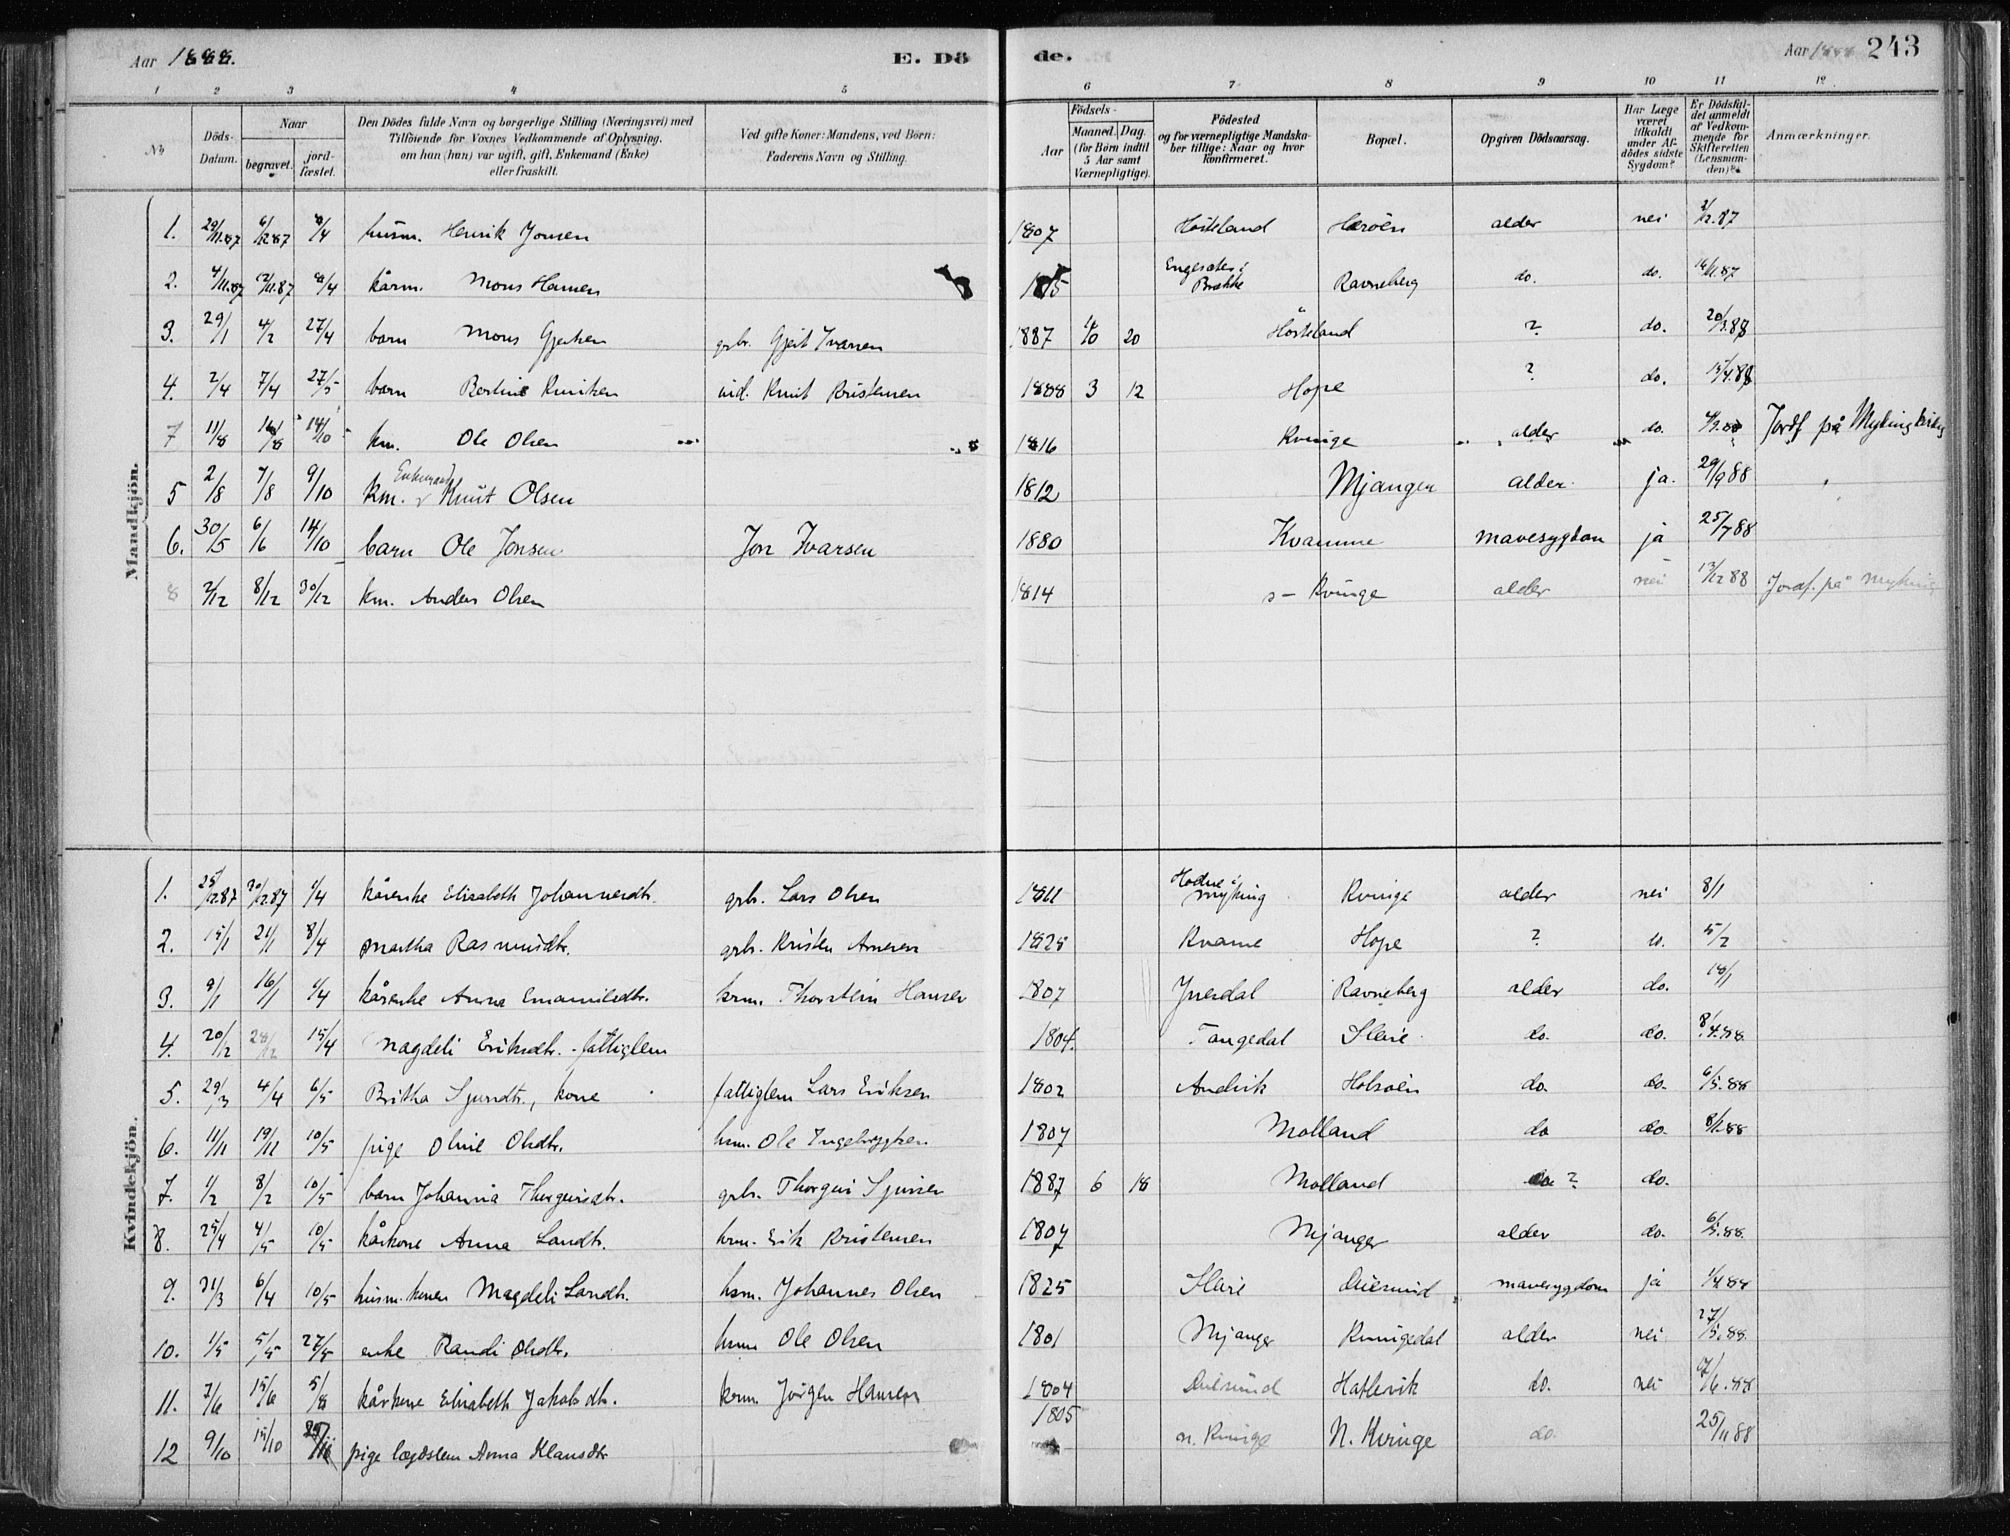 Aar 1888. E. Dö de. Aar 1888 243
1 2 3 4 5 6 7 8 9 10 11 12
No Döds-Datum. Naar begravet. jord-fæstet. Den Dödes fulde Navn og borgerlige Stilling (Næringsvei) med Tilföiende for Voxnes Vedkommende af Oplysning, om han (hun) var ugift, gift, Enkemand (Enke) eller fraskilt. Ved gifte Koner: Mandens, ved Börn: Faderens Navn og Stilling. Födsels- Aar Maaned. Dag. (for Börn indtil 5 Aar samt Værnepligtige). Födested og for værnepligtige Mandskaber tillige: Naar og hvor konfirmeret. Bopæl. Opgiven Dödsaarsag. Har Læge været tilkaldt under Afdödes sidste Sygdom? Er Dödsfaldet anmeldt af Vedkommende for Skifteretten (Lensmanden)? Anmærkninger.
Mandkjön.
1. 29/11.87 6/12.87 8/4 husm. Henrik Jonsen 1807 Hösteland Herøen alder nei 2/12.87
2. 4/11.87 12/11.87 8/4 kårm. Mons Hansen Engesæter i Brække Ravneberg do. do. 14/11.87
3. 29/1 4/2 27/4 barn Mons Gjertsen grbr. Gjert Ivarsen 1887 4/10 20 Hösteland ? do. 20/3.88
4. 2/4 7/4 27/5 barn Bertine Knutsen ind. Knut Kristensen 1888 3 12 Hope ? do. 15/4.88
7 11/8 16/8 14/10 km. Ole Olsen 1816 Kvinge alder do. Jordf på Myking
5 2/8 7/8 9/10 km. Enkemand Knut Olsen 1812 Mjanger alder ja. 29/9 88
6. 30/5 6/6 14/10 barn Ole Jonsen Jon Ivarsen 1880 Kvamme mavesygdom ja 25/7 88
8 2/12 8/12 30/12 km. Anders Olsen 1814 s- Kvinge alder nei 13/12 88 Jordf. på Myking
Kvindekjön.
1. 25/12.87 30/12.87 1/4 kårenke Elisabeth Johannesdtr. grbr. Lars Olsen 1811 Hodne i Myking Kvinge alder nei 8/1
2. 15/1 21/1 8/4 Martha Rasmusdtr. grbr. Kristen Arnesen 1825 Kvame Hope ? do. 5/2
3. 9/1 16/1 1/4 kårenke Anna Emanuelsdtr. krm. Thorstein Hansen 1807 Ynesdal Ravneberg alder do. 18/1
4. 20/12 28/12 15/4 Magdeli Eriksdtr. fattiglem 1804. Tangedal Sleire do. do. 8/4.88
5. 29/3 4/4 6/5 Britha Sjursdtr., kone fattiglem Lars Eriksen 1802 Andvik Holsøen do. do. 6/5.88
6. 11/11 19/11 10/5 pige Oline Olsdtr. hm. Ole Ingebrygtsen 1807 Molland do do. 8/1.88
7. 1/2 8/2 10/5 barn Johanna Thorgeirsdtr. grbr. Thorgeir Sjursen 1887 6 18 Molland do ? do.
8. 25/4 4/5 10/5 kårkone Anna Larsdtr. krm. Erik Kristensen 1807 Mjanger alder do. 6/5.88.
9. 31/3 6/4 10/5 husm.konen Magdeli Larsdtr. hsm. Johannes Olsen 1825 Sleire Duesund mavesygdom ja 1/4.88
10. 1/5 5/5 27/5 enke Randi Olsdtr. hsm Ole Olsen 1801 Mjanger Kvingedal alder nei 27/5.88.
11. 7/6 15/6 5/8 kårkone Elisabeth Jakobsdtr. krm. Jörgen Hansen 1804 Duesund Hatlevik do. nei 17/6.88
12 9/10 15/10 pige lægdslem Anna Klausdtr 1805 n. Kvinge N. Kvinge do. 25/11 88